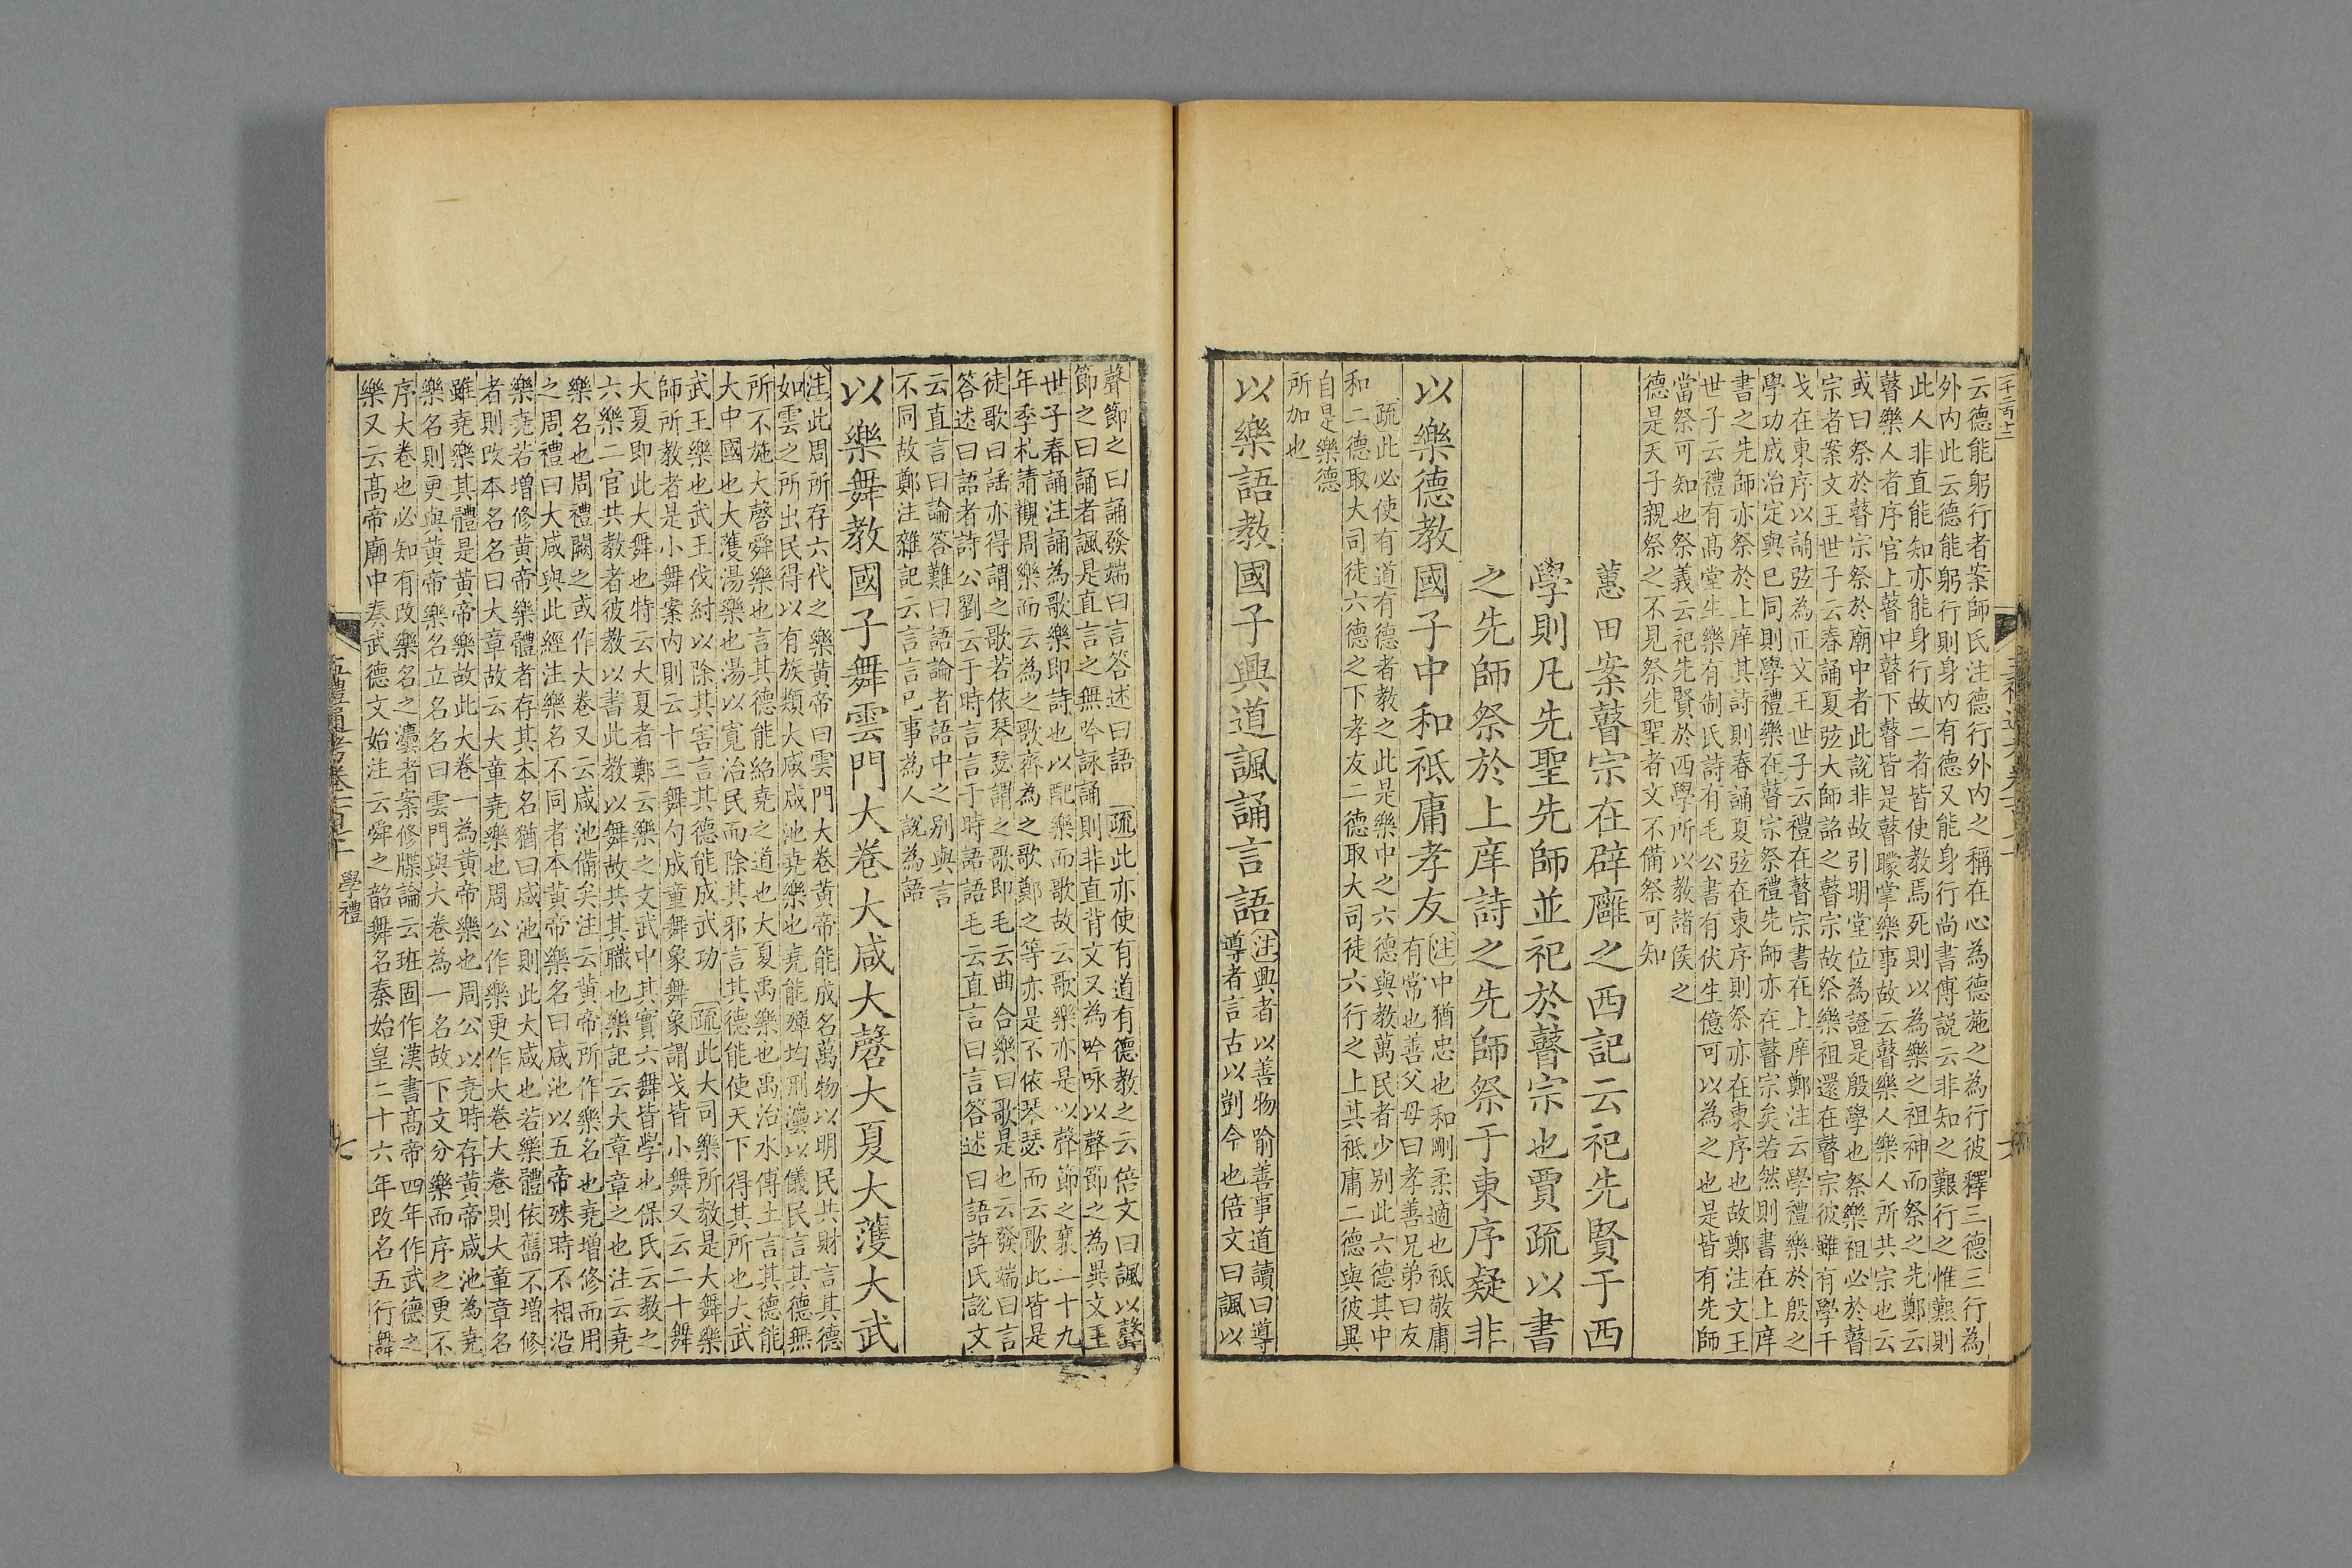 云德能躬行者案師氏注德行外內之稱在心為德施之為行彼釋三德三行為
外內此云德能躬行則身內有德又能身行尚書傳說云非知之艱行之惟艱則
此人非直能知亦能身行故二者皆使教焉死則以為樂之祖神而祭之先鄭云
瞽樂人者序官上瞽中瞽下瞽皆是瞽矇掌樂事故云瞽樂人樂人所共宗也云
或曰祭於瞽宗祭於廟中者此說非故引明堂位為證是殷學也祭樂祖必於瞽
宗者案文王世子云春誦夏弦大師詔之瞽宗故祭樂祖還在瞽宗彼雖有學干
戈在東序以誦弦為正文王世子云禮在瞽宗書在上庠鄭注云學禮樂於殷之
學功成治定與已同則學禮樂在瞽宗祭禮先師亦在瞽宗矣若然則書在上庠
書之先師亦祭於上庠其詩則春誦夏弦在東序則祭亦在東序也故鄭注文王
世子云禮有高堂生樂有制氏詩有毛公書有伏生億可以為之也是皆有先師
當祭可知也祭義云祀先賢於西學所以教諸侯之
德是天子親祭之不見祭先聖者文不備祭可知
蕙田案瞽宗在辟廱之西記云祀先賢于西
學則凡先聖先師並祀於瞽宗也賈疏以書
之先師祭於上庠詩之先師祭于東序疑非
以樂德教國子中和祗庸孝友
注中猶忠也和剛柔適也祗敬庸
有常也善父母曰孝善兄弟曰友
疏此必使有道有德者教之此是樂中之六德與教萬民者少別此六德其中
和二德取大司徒六德之下孝友二德取大司徒六行之上其祗庸二德與彼異
自是樂德
所加也
以樂語教國子興道諷誦言語
注興者以善物喻善事道讀曰導
導者言古以剴今也倍文曰諷以
聲節之曰誦發端曰言答述曰語 疏此亦使有道有德教之云倍文曰諷以聲
節之曰誦者諷是直言之無吟詠誦則非直背文又為吟咏以聲節之為異文王
世子春誦注誦為歌樂即詩也以配樂而歌故云歌樂亦是以聲節之襄二十九
年季札請觀周樂而云為之歌齊為之歌鄭之等亦是不依琴瑟而云歌此皆是
徒歌曰謠亦得謂之歌若依琴瑟謂之歌即毛云曲合樂曰歌是也云發端曰言
答述曰語者詩公劉云于時言言于時語語毛云直言曰言答述曰語許氏說文
云直言曰論答難曰語論者語中之別與言
不同故鄭注雜記云言言己事為人說為語
以樂舞教國子舞雲門大卷大咸大㲈大夏大濩大武
注此周所存六代之樂黃帝曰雲門大卷黃帝能成名萬物以明民共財言其德
如雲之所出民得以有族類大咸咸池堯樂也堯能殫均刑灋以儀民言其德無
所不施大㲈舜樂也言其德能紹堯之道也大夏禹樂也禹治水傅土言其德能
大中國也大濩湯樂也湯以寬治民而除其邪言其德能使天下得其所也大武
武王樂也武王伐紂以除其害言其德能成武功 疏此大司樂所教是大舞樂
師所教者是小舞案內則云十三舞勺成童舞象舞象謂戈皆小舞又云二十舞
大夏即此大舞也特云大夏者鄭云樂之文武中其實六舞皆學也保氏云教之
六樂二官共教者彼教以書此教以舞故共其職也樂記云大章章之也注云堯
樂名也周禮闕之或作大卷又云咸池備矣注云黃帝所作樂名也堯增修而用
之周禮曰大咸與此經注樂名不同者本黃帝樂名曰咸池以五帝殊時不相沿
樂堯若增修黃帝樂體者存其本名猶曰咸池則此大咸也若樂體依舊不增修
者則改本名名曰大章故云大章堯樂也周公作樂更作大卷大卷則大章章名
雖堯樂其體是黃帝樂故此大卷一為黃帝樂也周公以堯時存黃帝咸池為堯
樂名則更與黃帝樂名立名名曰雲門與大卷為一名故下文分樂而序之更不
序大卷也必知有改樂名之灋者案修牒論云班固作漢書高帝四年作武德之
樂又云高帝廟中奏武德文始注云舜之韶舞名秦始皇二十六年改名五行舞
學禮
七